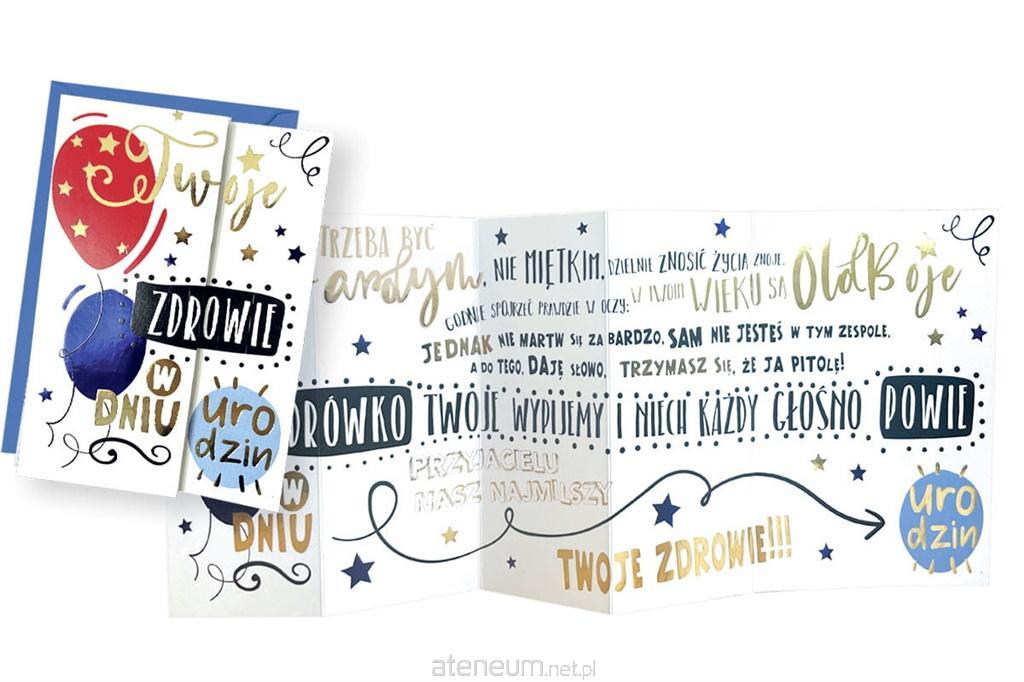 Twoje
ZDROWIE
W
DNIU
uro
dzin
TRZEBA BYĆ
NIE MIĘTKIM, DZIELNIE ZNOSIĆ ŻYCIA ZNOJE.
GODNIE SPOJRZEĆ PRAWDZIE W OCZY: W TWOIM WIEKU SĄ OldBoje
JEDNAK NIE MARTW SIĘ ZA BARDZO, SAM NIE JESTEŚ W TYM ZESPOLE,
A DO TEGO, DAJĘ SŁOWO, TRZYMASZ SIĘ, ŻE JA PITOLĘ!
DRÓWKO TWOJE WYPIJEMY I NIECH KAŻDY GŁOŚNO POWIE
PRZYJACIELU
NASZ NAJMILSZY
W
DNIU
TWOJE ZDROWIE!!!
uro
dzin
ateneum.net.pl